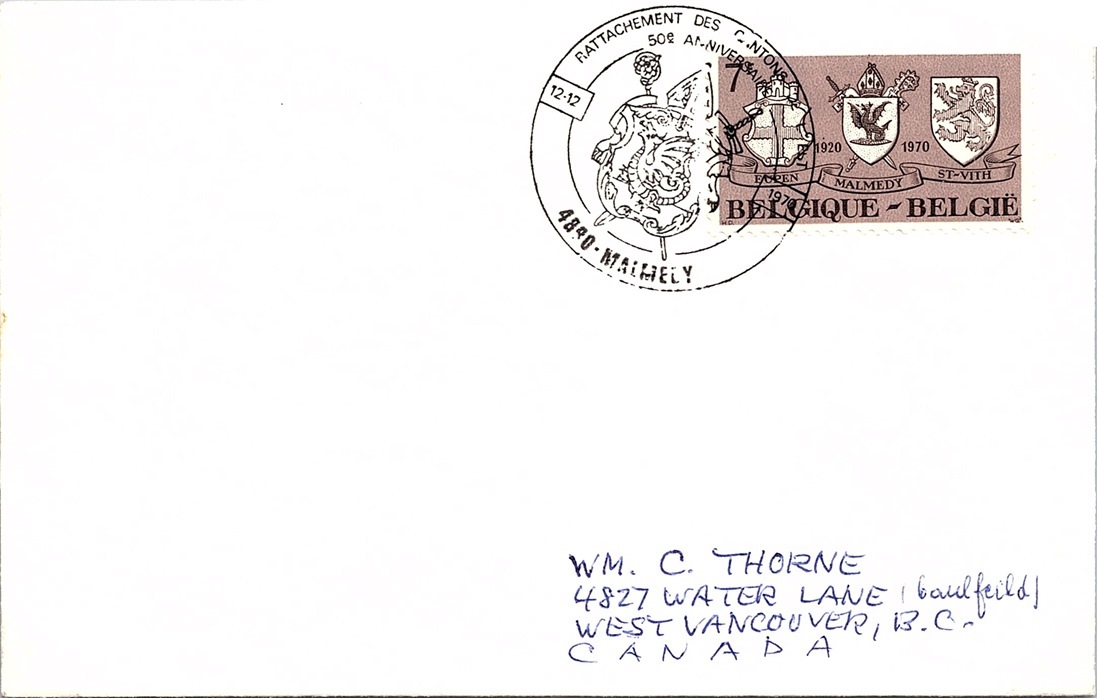 RATTACHEMENT DES CANTONS
50e ANNIVERSAIRE
12-12
1970
4890-MALMEDY
7
1920 1970
EUPEN MALMEDY ST-VITH
BELGIQUE - BELGIË
WM. C. THORNE
4827 WATER LANE (Caulfeild)
WEST VANCOUVER, B.C.
CANADA